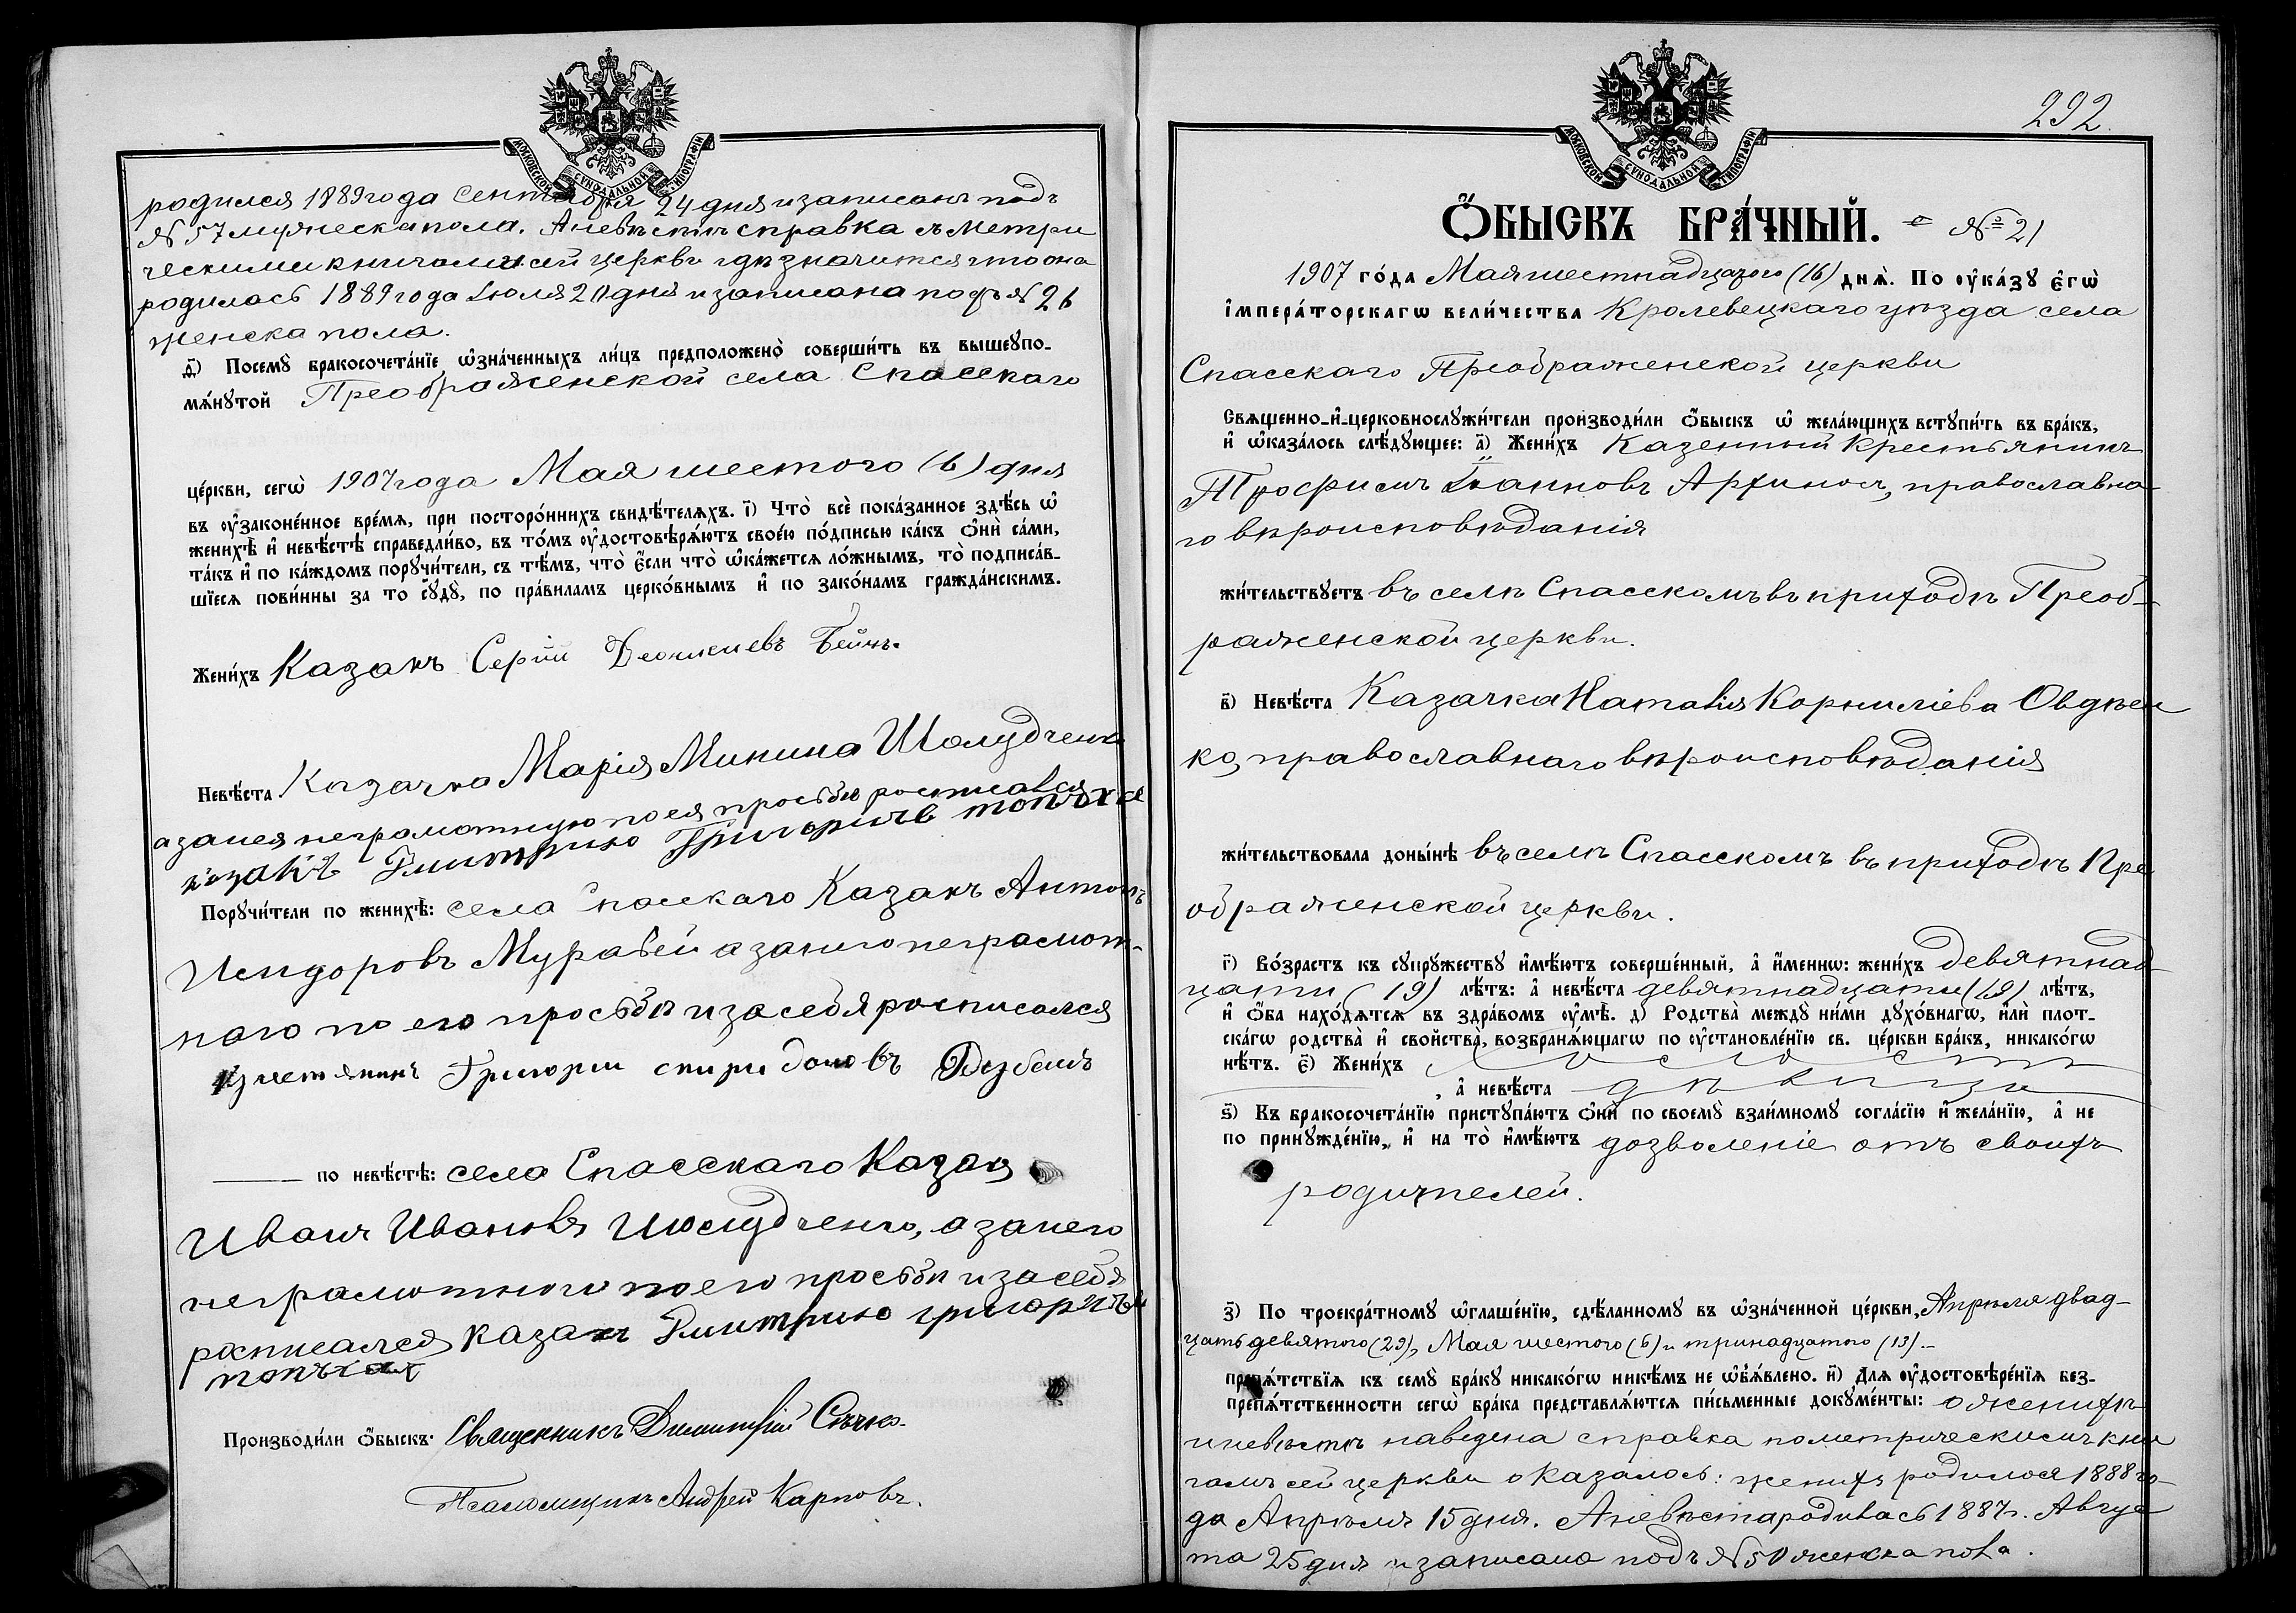 родился 1889 года Сентября 24 дня и записанъ подъ
№ 57 мужеска пола. А невѣстѣ справка съ метри
ческими книгами сей церкви гдѣ значится что она
родилась 1889 года Іюля 20 дня и записана подъ № 26
женска пола.
д҃) Посемꙋ̀ бракосочета́нїе ѡ҆зна́ченныхъ ли́цъ предположено̀ соверши́ть въ вышеꙋпо-
мѧ́нꙋтой Преображенской села Спасскаго
це́ркви, сегѡ̀ 1907 года Мая шестого (6) дня
въ ᲂу҆законе́нное вре́мѧ, при посторо́ннихъ свидѣ́телѧхъ. і҃) Что̀ всѐ пока́занное здѣ́сь ѡ҆
женихѣ̀ и҆ невѣ́стѣ справедли́во, въ то́мъ ᲂу҆достовѣрѧ́ютъ свое́ю по́дписью ка́къ ѻ҆нѝ са́ми,
та́къ и҆ по ка́ждомъ порꙋчи́тели, съ тѣ́мъ, что̀ є҆́сли что̀ ѡ҆ка́жетсѧ ло́жнымъ, то̀ подписа́в-
шїесѧ пови́нны за то сꙋдꙋ̀, по пра́виламъ церко́внымъ и҆ по зако́намъ гражда́нскимъ.
Жени́хъ Казакъ Сергій
Невѣ́ста Казачка Марія Минина Шолудченко
а за нея неграмотную по ея просьбѣ росписался
казакъ Дмитрию Григориев
Порꙋчи́тели по женихѣ̀: села Спасскаго Казакъ Антонъ
Исидоровъ Муравей а за него неграмот-
наго по его просьбѣ и за себя росписался
Григории спиридоновъ
по невѣ́стѣ: села Спасскаго Казак
Иванъ Ивановъ Шолудченко, а за него
неграмотного по его просьбѣ и за себя
росписался казакъ Дмитрию григориев
Производи́ли ѻ҆́быскъ: Священникъ Димитрій Сѣчко.
Псаломщикъ Андрей Карповъ.
292
Ѻ҆́БЫСКЪ БРА́ЧНЫЙ. № 21
1907 го́да Мая шестнадцатого (16) днѧ̀. По ᲂу҆ка́зꙋ є҆гѡ̀
і҆мпера́торскагѡ вели́чества Кролевецкаго уѣзда села
Спасскаго Преображенской церкви
Свѧщенно-и҆-церковнослꙋжи́тели производи́ли ѻ҆́быскъ ѡ҆ жела́ющихъ встꙋпи́ть въ бра́къ,
и҆ ѡ҆каза́лось слѣ́дꙋющее: а҃) Жени́хъ Казенный крестьянинъ
Трофимъ Іоанновъ, православна
го вѣроисповѣданія
жи́тельствꙋетъ въ селѣ Спасскомъ въ приходѣ Преоб-
раженской церкви.
в҃) Невѣ́ста Казачка Наталія Корниліева Овдѣен
ко, православнаго вѣроисповѣданія
жи́тельствовала доны́нѣ въ селѣ Спасскомъ въ приходѣ Пре
ображенской церкви.
г҃) Во́зрастъ къ сꙋпрꙋ́жествꙋ и҆мѣ́ютъ соверше́нный, а҆ и҆́меннѡ: жени́хъ девятнад
цати (19) лѣ́тъ: а҆ невѣ́ста девятнадцати (19) лѣ́тъ,
и҆ ѻ҆́ба нахо́дѧтсѧ въ здра́вомъ ᲂу҆мѣ̀. д) Родства̀ междꙋ̀ ни́ми дꙋхо́внагѡ, и҆лѝ плот-
ска́гѡ родства̀ и҆ свойства̀, возбранѧ́ющагѡ по ᲂу҆становле́нїю св. це́ркви бра́къ, никако́гѡ
нѣ́тъ. є҃) Жени́хъ холостъ
, а҆ невѣ́ста дѣвица
ѕ҃) Къ бракосочета́нїю пристꙋпа́ютъ ѻ҆нѝ по своемꙋ̀ взаи́мномꙋ согла́сїю и҆ жела́нїю, а҆ не
по принꙋжде́нїю, и҆ на то̀ и҆мѣ́ютъ дозволеніе отъ своихъ
родителей.
з҃) По троекра́тномꙋ ѡ҆глаше́нїю, сдѣ́ланномꙋ въ ѡ҆зна́ченной це́ркви, Апрѣля двад-
цать девятого (29), Мая шестого (6) и тринадцатого (13).-
препѧ́тствїѧ къ семꙋ̀ бра́кꙋ никако́гѡ никѣ́мъ не ѡ҆б̾ѧ́влено. и҃) Для ᲂу҆достовѣре́нїѧ без-
препѧ́тственности сегѡ̀ бра́ка представлѧ́ютсѧ пи́сьменные докꙋме́нты: о женихѣ
и невѣстѣ наведена справка по метрическимъ кни
гамъ сей церкви оказалось: женихъ родился 1888 го-
да Апрѣля 15 дня. А невѣста родилась 1887 г. Авгус
та 25 дня и записана подъ № 50 женска пола.